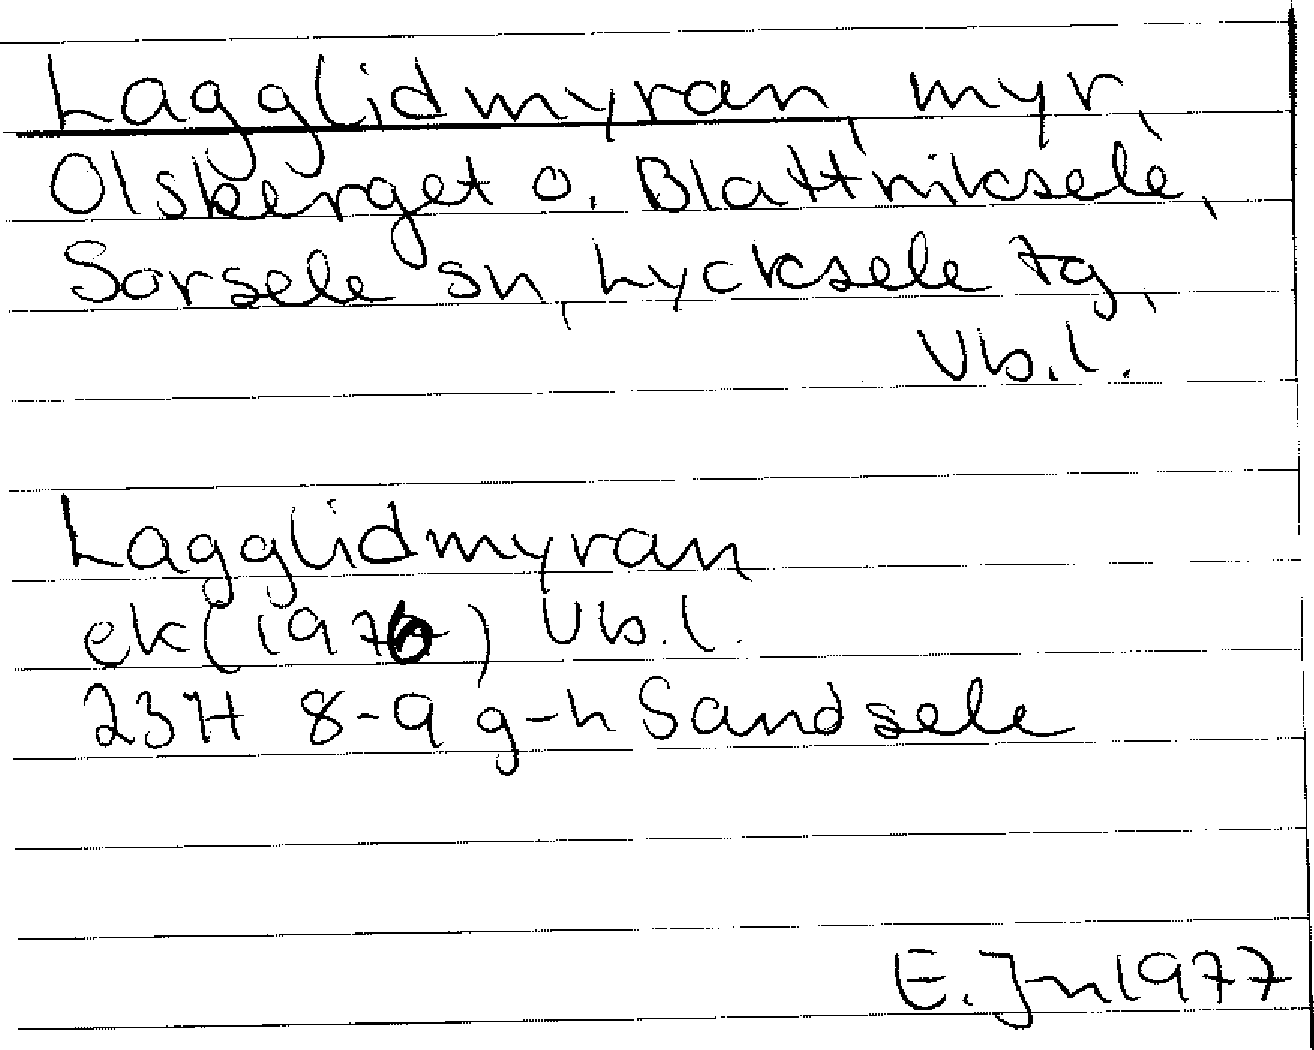 Lagglidmyran, myr,
Olsberget o. Blattniksele,
Sorsele sn, Lycksele tg,
Vb.l.
Lagglidmyran
ek (1976) Vb.l.
23H 8-9 g-h Sandsele
E. Jn 1977